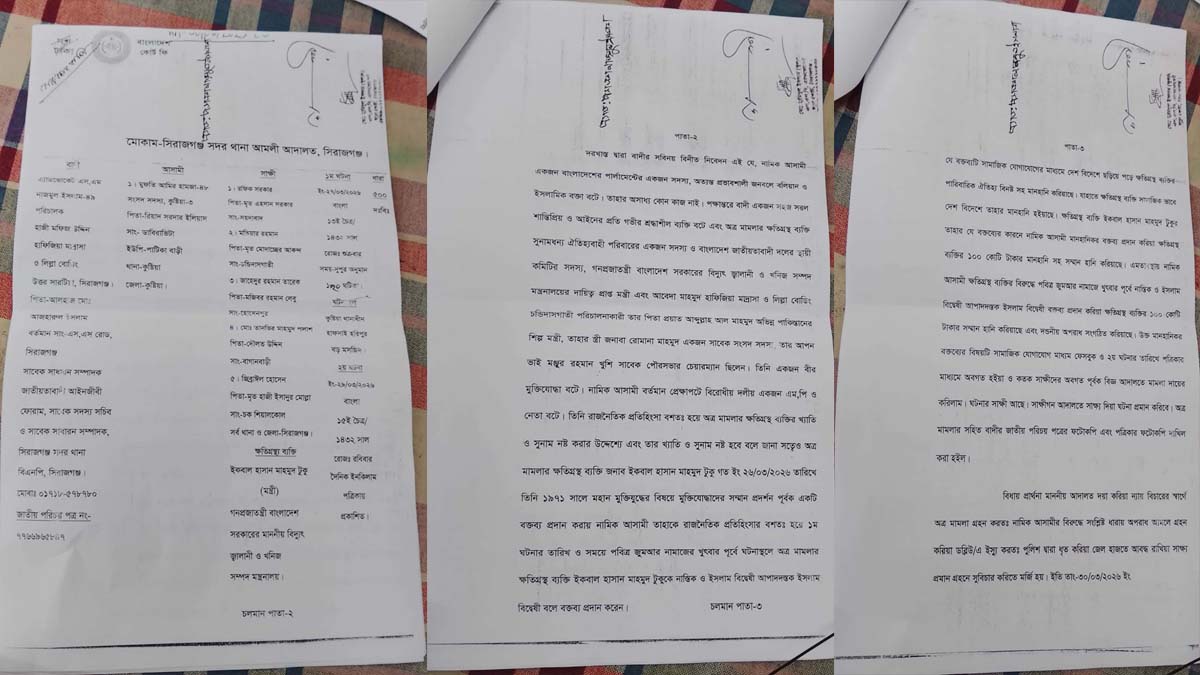 বাংলাদেশ
কোর্ট ফি
মোকাম-সিরাজগঞ্জ সদর থানা আমলী আদালত, সিরাজগঞ্জ।
বাদী
এ্যাডভোকেট এস,এম
নাজমুল ইসলাম-৪৯
পরিচালক
হাজী মফিজ উদ্দিন
হাফিজিয়া মাদ্রাসা
৫ লিল্লা বোডিং
উত্তর সারটিয়া, সিরাজগঞ্জ।
পিতা-আলহাজ্ব মোঃ
আজহারুল ইসলাম
বর্তমান সাং-এস,এস রোড,
সিরাজগঞ্জ
সাবেক সাধারন সম্পাদক
জাতীয়তাবাদী আইনজীবী
ফোরাম, সাবেক সদস্য সচিব
ও সাবেক সাধারন সম্পাদক,
সিরাজগঞ্জ সদর থানা
বিএনপি, সিরাজগঞ্জ।
মোবাঃ ০১৭১৮-৫৭৮৭৮০
জাতীয় পরিচয় পত্র নং-
আসামী
১। মুফতি আমির হামজা-৪৮
সংসদ সদস্য, কুষ্টিয়া-৩
পিতা-রিয়াদ সরদার ইলিয়াদ
সাং- ডাবিরাভিটা
ইউপি-পাটিকা বাড়ী
থানা-কুষ্টিয়া
জেলা-কুষ্টিয়া।
সাক্ষী
১। রফিক সরকার
পিতা-মৃত এহসান সরকার
সাং-সয়দাবাদ
২। মতিয়ার রহমান
পিতা-মৃত মোদাচ্ছের আকন্দ
সাং-চন্ডিদাসগাতী
৩। জাহেদুর রহমান তারেক
পিতা-মজিবর রহমান লেবু
সাং-হোসেনপুর
৪। মোঃ তানভির মাহমুদ পলাশ
পিতা-দৌলত উদ্দিন
সাং-বাগানবাড়ী
৫। জিব্রাঈল হোসেন
পিতা-মৃত হাজী ইসাদুর মোল্লা
সাং-চক শিয়ালকোল
সর্ব থানা ও জেলা-সিরাজগঞ্জ।
ক্ষতিগ্রস্থ্য ব্যক্তি
ইকবাল হাসান মাহমুদ টুকু
(মন্ত্রী)
গনপ্রজাতন্ত্রী বাংলাদেশ
সরকারের মাননীয় বিদ্যুৎ
জ্বালানী ও খনিজ
সম্পদ মন্ত্রনালয়।
১ম ঘটনা
ইং-২৭/০৩/২০২৬
বাংলা
১৩ই চৈত্র/
১৪৩২ সাল
রোজঃ শুক্রবার
সময়-দুপুর অনুমান
ঘটিকা।
ঘটনাস্থল
কুষ্টিয়া থানাধীন
হাফসাই হরিপুর
বড় মসজিদ।
২য় ঘটনা
ইং-২৯/০৩/২০২৬
বাংলা
১৫ই চৈত্র/
১৪৩২ সাল
রোজঃ রবিবার
দৈনিক ইনকিলাব
পত্রিকায়
প্রকাশিত।
ধারা
৫০০
দঃবিঃ
চলমান পাতা-২
পাতা-২
দরখাস্ত দ্বারা বাদীর সবিনয় বিনীত নিবেদন এই যে, নামিক আসামী
একজন বাংলাদেশের পার্লামেন্টের একজন সদস্য, অত্যন্ত প্রভাবশালী জনবলে বলিয়ান ও
ইসলামিক বক্তা বটে। তাহার অসাধ্য কোন কাজ নাই। পক্ষান্তরে বাদী একজন সহজ সরল
শান্তিপ্রিয় ও আইনের প্রতি গভীর শ্রদ্ধাশীল ব্যক্তি বটে এবং অত্র মামলার ক্ষতিগ্রস্থ ব্যক্তি
সুনামধন্য ঐতিহ্যবাহী পরিবারের একজন সদস্য ও বাংলাদেশ জাতীয়তাবাদী দলের স্থায়ী
কমিটির সদস্য, গনপ্রজাতন্ত্রী বাংলাদেশ সরকারের বিদ্যুৎ জ্বালানী ও খনিজ সম্পদ
মন্ত্রনালয়ের দায়িত্ব প্রাপ্ত মন্ত্রী এবং আবেদা মাহমুদ হাফিজিয়া মাদ্রাসা ও লিল্লা বোডিং
চন্ডিদাসগাতী পরিচালনাকারী তার পিতা প্রয়াত আব্দুল্লাহ আল মাহমুদ অভিন্ন পাকিস্তানের
শিল্প মন্ত্রী, তাহার স্ত্রী জনাবা রোমানা মাহমুদ একজন সাবেক সংসদ সদস্য, তার আপন
ভাই মঞ্জুর রহমান খুশি সাবেক পৌরসভার চেয়ারম্যান ছিলেন। তিনি একজন বীর
মুক্তিযোদ্ধা বটে। নামিক আসামী বর্তমান প্রেক্ষাপটে বিরোধীয় দলীয় একজন এম,পি ও
নেতা বটে। তিনি রাজনৈতিক প্রতিহিংসা বশতঃ হয়ে অত্র মামলার ক্ষতিগ্রস্থ ব্যক্তির খ্যাতি
ও সুনাম নষ্ট করার উদ্দেশ্যে এবং তার খ্যাতি ও সুনাম নষ্ট হবে বলে জানা সত্বেও অত্র
মামলার ক্ষতিগ্রস্থ ব্যক্তি জনাব ইকবাল হাসান মাহমুদ টুকু গত ইং ২৬/০৩/২০২৬ তারিখে
তিনি ১৯৭১ সালে মহান মুক্তিযুদ্ধের বিষয়ে মুক্তিযোদ্ধাদের সম্মান প্রদর্শন পূর্বক একটি
বক্তব্য প্রদান করায় নামিক আসামী তাহাকে রাজনৈতিক প্রতিহিংসার বশতঃ হয়ে ১ম
ঘটনার তারিখ ও সময়ে পবিত্র জুমআর নামাজের খুৎবার পূর্বে ঘটনাস্থলে অত্র মামলার
ক্ষতিগ্রস্থ ব্যক্তি ইকবাল হাসান মাহমুদ টুকুকে নাস্তিক ও ইসলাম বিদ্বেষী আপাদদন্তক ইসলাম
বিদ্বেষী বলে বক্তব্য প্রদান করেন।
চলমান পাতা-৩
পাতা-৩
যে বক্তব্যটি সামাজিক যোগাযোগের মাধ্যমে দেশ বিদেশে ছড়িয়ে পড়ে ক্ষতিগ্রস্থ ব্যক্তির
পারিবারিক ঐতিহ্য বিনষ্ট সহ মানহানি করিয়াছে। যাহাতে ক্ষতিগ্রস্থ ব্যক্তি সামাজিক ভাবে
দেশ বিদেশে তাহার মানহানি হইয়াছে। ক্ষতিগ্রস্থ ব্যক্তি ইকবাল হাসান মাহমুদ টুকুর
তাহার যে বক্তব্যের কারনে নামিক আসামী মানহানিকর বক্তব্য প্রদান করিয়া ক্ষতিগ্রস্থ
ব্যক্তির ১০০ কোটি টাকার মানহানি সহ সম্মান হানি করিয়াছে। এমতাবস্থায় নামিক
আসামী ক্ষতিগ্রস্থ ব্যক্তির বিরুদ্ধে পবিত্র জুমআর নামাজে খুৎবার পূর্বে নাস্তিক ও ইসলাম
বিদ্বেষী আপাদদন্তক ইসলাম বিদ্বেষী বক্তব্য প্রদান করিয়া ক্ষতিগ্রস্থ ব্যক্তির ১০০ কোটি
টাকার সম্মান হানি করিয়াছে এবং দন্ডনীয় অপরাধ সংগঠিত করিয়াছে। উক্ত মানহানিকর
বক্তব্যের বিষয়টি সামাজিক যোগাযোগ মাধ্যম ফেসবুক ও ২য় ঘটনার তারিখে পত্রিকার
মাধ্যমে অবগত হইয়া ও কতক সাক্ষীদের অবগত পূর্বক বিজ্ঞ আদালতে মামলা দায়ের
করিলাম। ঘটনার সাক্ষী আছে। সাক্ষীগন আদালতে সাক্ষ্য দিয়া ঘটনা প্রমান করিবে। অত্র
মামলার সহিত বাদীর জাতীয় পরিচয় পত্রের ফটোকপি এবং পত্রিকার ফটোকপি দাখিল
করা হইল।
বিধায় প্রার্থনা মাননীয় আদালত দয়া করিয়া ন্যায় বিচারের স্বার্থে
অত্র মামলা গ্রহন করতঃ নামিক আসামীর বিরুদ্ধে সংশ্লিষ্ট ধারায় অপরাধ আমলে গ্রহন
করিয়া ডব্লিউ/এ ইস্যু করতঃ পুলিশ দ্বারা ধৃত করিয়া জেল হাজতে আবদ্ধ রাখিয়া সাক্ষ্য
প্রমান গ্রহনে সুবিচার করিতে মর্জি হয়। ইতি তাং-৩০/০৩/২০২৬ ইং